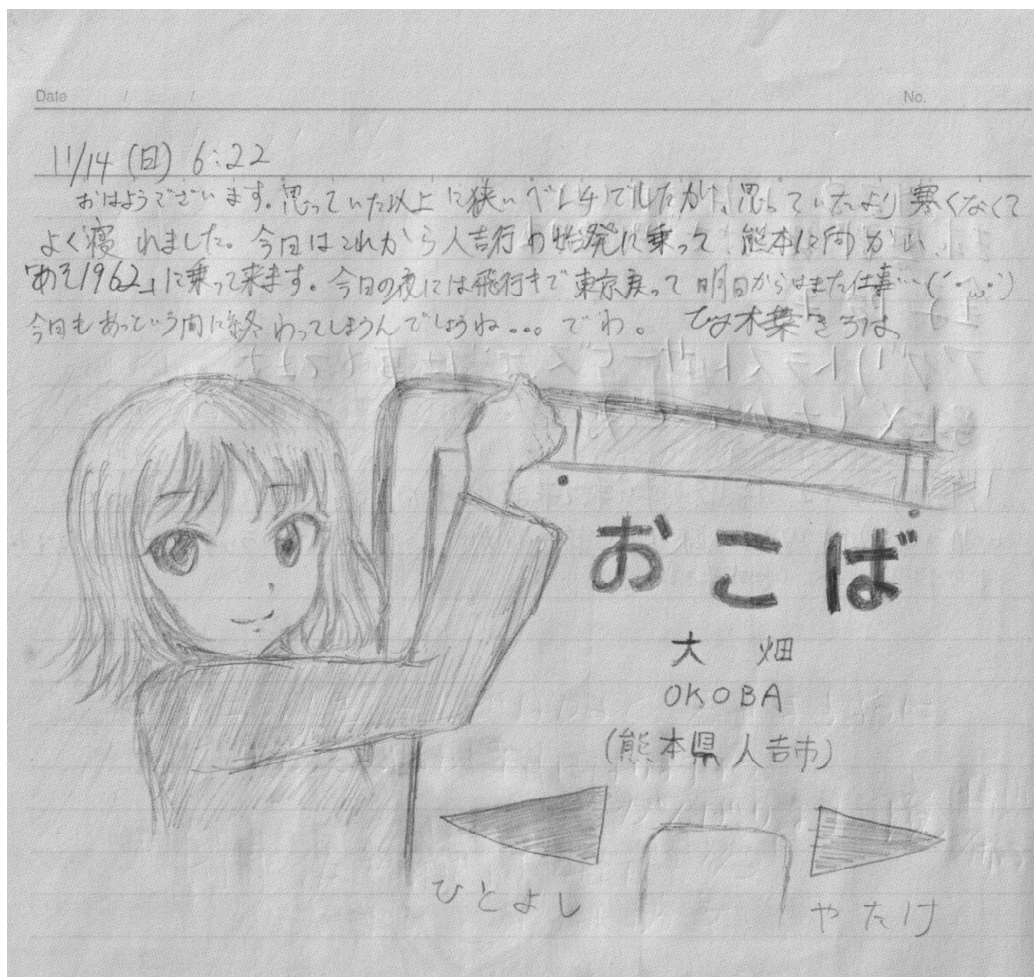 Date / /
No.
11/14 (日) 6:22
おはようございます。思っていた以上に狭いベンチでしたが、思っていたより寒くなくて
よく寝れました。今日はこれから人吉行の始発に乗って、熊本に向かい、
「あそ1962」に乗って来ます。今日の夜には飛行きで東京戻って明日からはまた仕事…(´・ω・`)
今日もあっという間に終わってしまうんでしょうね...。でわ。
おこば
大畑
OKOBA
(熊本県人吉市)
ひとよし
やたけ